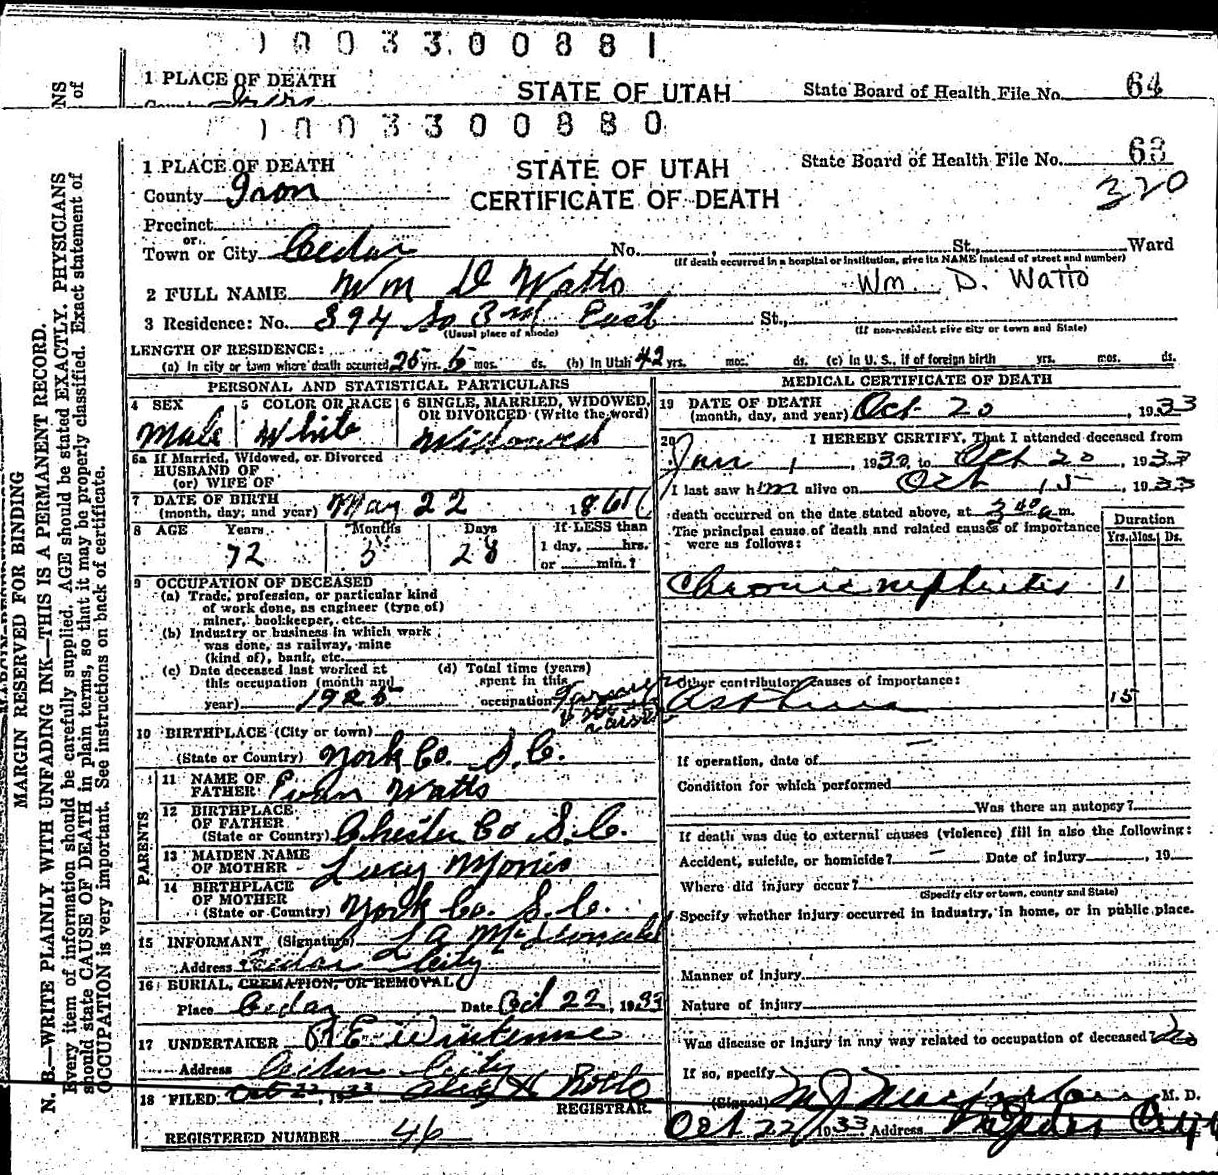 003300881
1 PLACE OF DEATH
STATE OF UTAH
State Board of Health File No. 64
003300880
1 PLACE OF DEATH
STATE OF UTAH
State Board of Health File No. 63
County Iron
CERTIFICATE OF DEATH
320
Precinct
or
Town or City Cedar No. , St., Ward
(If death occurred in a hospital or institution, give its NAME instead of street and number)
2 FULL NAME Wm D Watts
Wm. D. Watts
3 Residence: No. 394 So 3rd East St.,
(Usual place of abode)
(If non-resident give city or town and State)
LENGTH OF RESIDENCE:
(a) In city or town where death occurred 25 yrs. 5 mos. ds. (b) In Utah 42 yrs. mos. ds. (c) In U. S., if of foreign birth yrs. mos. ds.
PERSONAL AND STATISTICAL PARTICULARS
4 SEX
Male
5 COLOR OR RACE
White
6 SINGLE, MARRIED, WIDOWED, OR DIVORCED (Write the word)
Widowed
6a If Married, Widowed, or Divorced
HUSBAND OF
(or) WIFE OF
7 DATE OF BIRTH
(month, day, and year) May 22 1861
8 AGE Years Months Days If LESS than
72 5 28 1 day, hrs.
or min.?
9 OCCUPATION OF DECEASED
(a) Trade, profession, or particular kind
of work done, as engineer (type of)
miner, bookkeeper, etc.
(b) Industry or business in which work
was done, as railway, mine
(kind of), bank, etc.
(c) Date deceased last worked at
this occupation (month and
year) 1925
(d) Total time (years)
spent in this
occupation Farmer
10 BIRTHPLACE (City or town)
(State or Country) York Co. S.C.
PARENTS
11 NAME OF
FATHER Evan Watts
12 BIRTHPLACE
OF FATHER
(State or Country) Chester Co S.C.
13 MAIDEN NAME
OF MOTHER Lucy Morris
14 BIRTHPLACE
OF MOTHER
(State or Country) York Co. S.C.
15 INFORMANT (Signature) L A McDonald
Address Cedar City
16 BURIAL, CREMATION, OR REMOVAL
Place Cedar Date Oct 22, 1933
17 UNDERTAKER
Address Cedar City
18 FILED Oct 22, 1933
REGISTRAR.
REGISTERED NUMBER 46
MEDICAL CERTIFICATE OF DEATH
19 DATE OF DEATH
(month, day, and year) Oct 20, 1933
20 I HEREBY CERTIFY, That I attended deceased from
Jan 1, 1932, to Oct 20, 1933
I last saw him alive on Oct 15, 1933
death occurred on the date stated above, at 3 40 a m.
The principal cause of death and related causes of importance
were as follows:
Duration
Yrs. Mos. Ds.
Chronic nephritis 1
Other contributory causes of importance:
Asthma 15
If operation, date of
Condition for which performed
Was there an autopsy?
If death was due to external causes (violence) fill in also the following:
Accident, suicide, or homicide? Date of injury , 19
Where did injury occur?
(Specify city or town, county and State)
Specify whether injury occurred in industry, in home, or in public place.
Manner of injury
Nature of injury
Was disease or injury in any way related to occupation of deceased? No
If so, specify
(Signed) M. D.
Oct 22, 1933 Address Cedar City
MARGIN RESERVED FOR BINDING
N. B.—WRITE PLAINLY WITH UNFADING INK—THIS IS A PERMANENT RECORD.
Every item of information should be carefully supplied. AGE should be stated EXACTLY. PHYSICIANS
should state CAUSE OF DEATH in plain terms, so that it may be properly classified. Exact statement of
OCCUPATION is very important. See instructions on back of certificate.